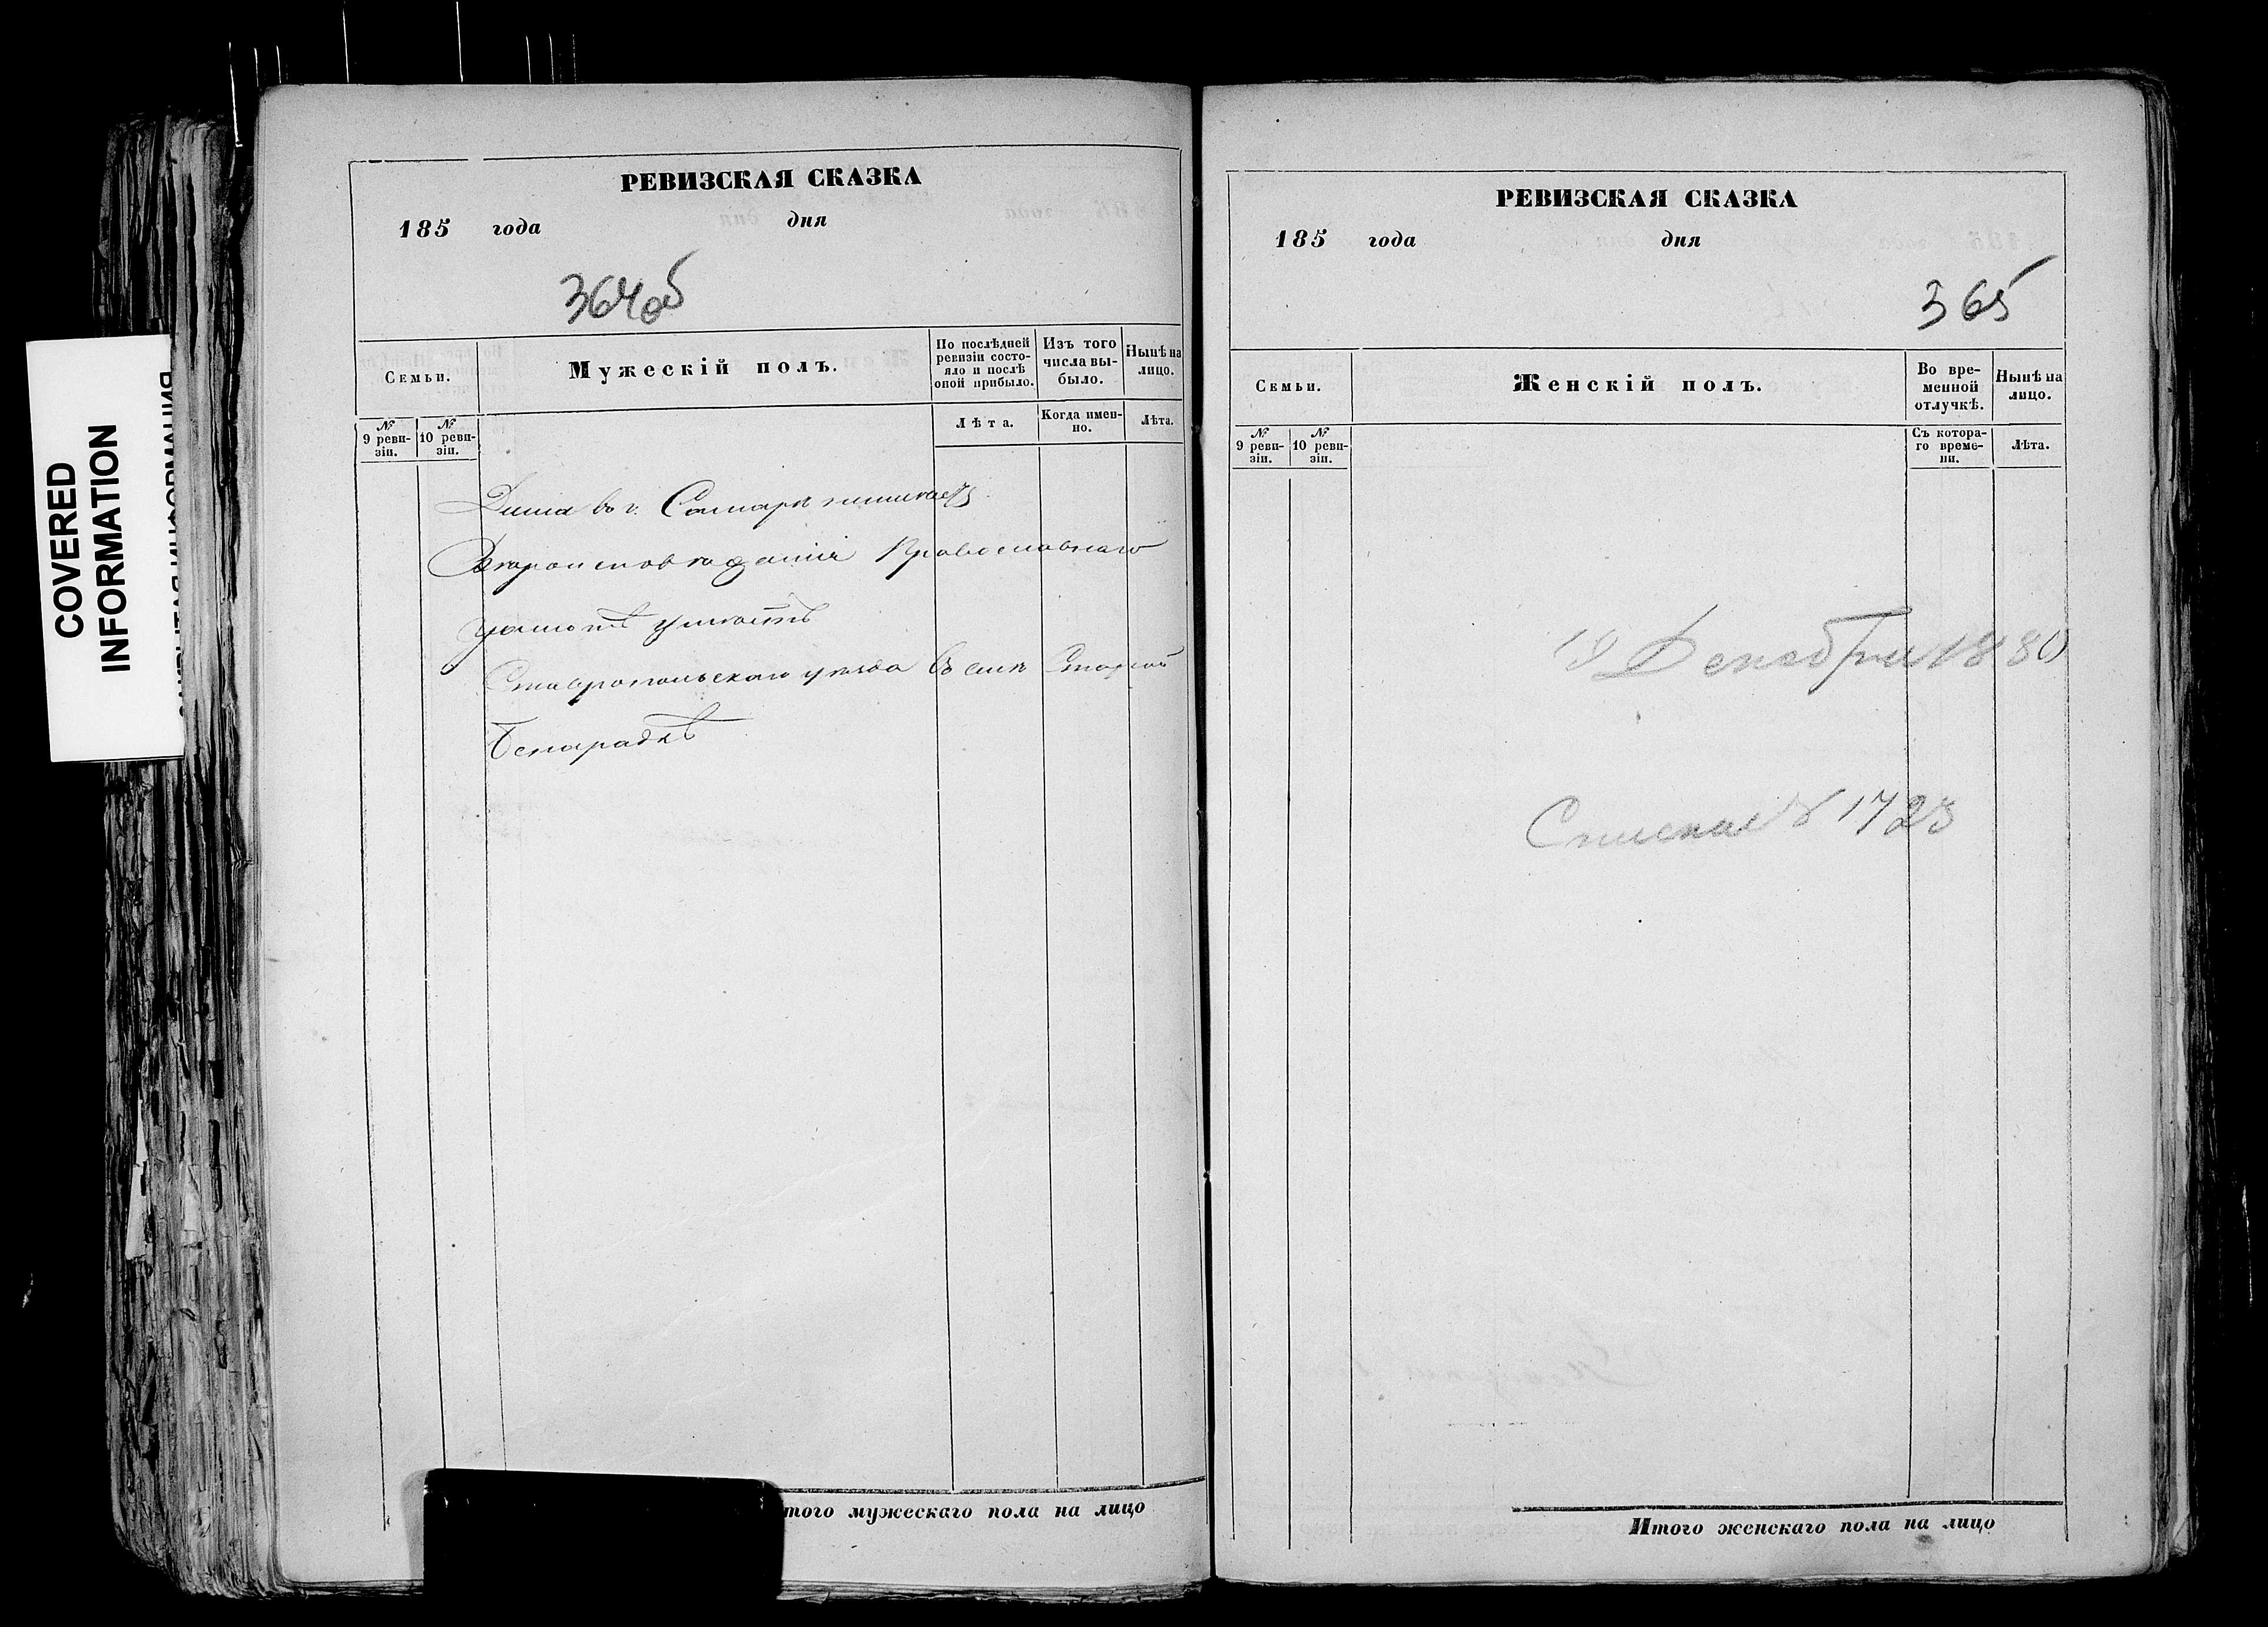 COVERED
INFORMATION
РЕВИЗСКАЯ СКАЗКА
185 года дня
364об
Семьи.
Мужескій полъ.
По послѣдней ревизіи состояло и послѣ оной прибыло.
Изъ того числа выбыло.
Нынѣ на лицо.
№ 9 ревизіи.
№ 10 ревизіи.
Лѣта.
Когда именно.
Лѣта.
Дома въ г. Самарѣ не имѣетъ
Вѣроисповѣданія Православнаго
грамотѣ умѣетъ
Ставропольскаго уѣзда въ селѣ Старой
Бенарадкѣ
того мужескаго пола на лицо
РЕВИЗСКАЯ СКАЗКА
185 года дня
365
Семьи.
Женскій полъ.
Во временной отлучкѣ.
Нынѣ на лицо.
№ 9 ревизіи.
№ 10 ревизіи.
Съ котораго времени.
Лѣта.
Декабря 1880
1723
Итого женскаго пола на лицо